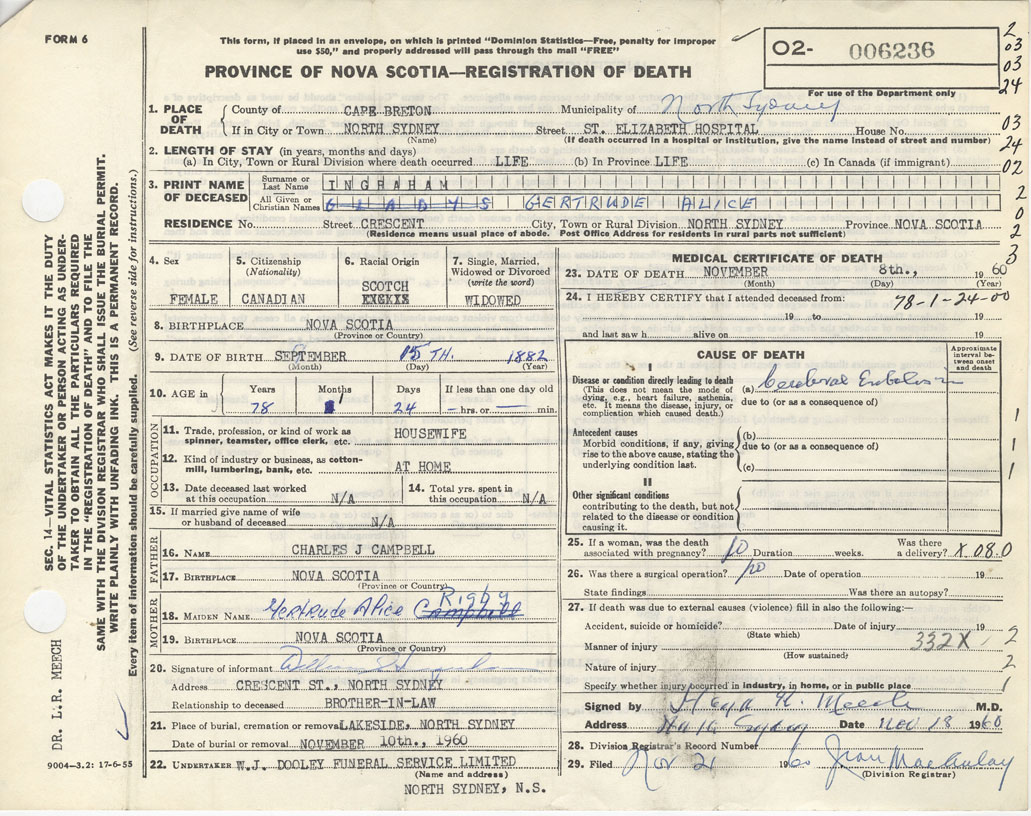 FORM 6
This form, if placed in an envelope, on which is printed "Dominion Statistics—Free, penalty for improper
use $50," and properly addressed will pass through the mail "FREE"
PROVINCE OF NOVA SCOTIA—REGISTRATION OF DEATH
02- 006236
For use of the Department only
2
03
03
24
03
24
02
2
0
2
3
1. PLACE OF DEATH
County of CAPE BRETON Municipality of North Sydney
If in City or Town NORTH SYDNEY Street ST. ELIZABETH HOSPITAL House No.
(Name) (If death occurred in a hospital or institution, give the name instead of street and number)
2. LENGTH OF STAY (in years, months and days)
(a) In City, Town or Rural Division where death occurred LIFE (b) In Province LIFE (c) In Canada (if immigrant)
3. PRINT NAME OF DECEASED
Surname or Last Name INGRAHAM
All Given or Christian Names GLADYS GERTRUDE ALICE
RESIDENCE No. Street CRESCENT City, Town or Rural Division NORTH SYDNEY Province NOVA SCOTIA
(Residence means usual place of abode. Post Office Address for residents in rural parts not sufficient)
4. Sex
FEMALE
5. Citizenship
(Nationality)
CANADIAN
6. Racial Origin
SCOTCH
7. Single, Married,
Widowed or Divorced
(write the word)
WIDOWED
8. BIRTHPLACE NOVA SCOTIA
(Province or Country)
9. DATE OF BIRTH SEPTEMBER 15 TH. 1882
(Month) (Day) (Year)
10. AGE in
Years Months Days If less than one day old
78 1 24 — hrs. or — min.
OCCUPATION
11. Trade, profession, or kind of work as
spinner, teamster, office clerk, etc. HOUSEWIFE
12. Kind of industry or business, as cotton-
mill, lumbering, bank, etc. AT HOME
13. Date deceased last worked
at this occupation N/A
14. Total yrs. spent in
this occupation N/A
15. If married give name of wife
or husband of deceased N/A
FATHER
16. NAME CHARLES J CAMPBELL
17. BIRTHPLACE NOVA SCOTIA
(Province or Country)
MOTHER
Rigby
18. MAIDEN NAME Gertrude Alice Campbell
19. BIRTHPLACE NOVA SCOTIA
(Province or Country)
20. Signature of informant
Address CRESCENT ST., NORTH SYDNEY
Relationship to deceased BROTHER-IN-LAW
21. Place of burial, cremation or removal LAKESIDE, NORTH SYDNEY
Date of burial or removal NOVEMBER 10th., 1960
22. UNDERTAKER W.J. DOOLEY FUNERAL SERVICE LIMITED
(Name and address)
NORTH SYDNEY, N.S.
MEDICAL CERTIFICATE OF DEATH
23. DATE OF DEATH NOVEMBER 8th., 1960
(Month) (Day) (Year)
24. I HEREBY CERTIFY that I attended deceased from: 78-1-24-00
19 to 19
and last saw h alive on 19
CAUSE OF DEATH
Approximate
interval be-
tween onset
and death
I
Disease or condition directly leading to death
(This does not mean the mode of
dying, e.g., heart failure, asthenia,
etc. It means the disease, injury, or
complication which caused death.)
(a) Cerebral Embolism
due to (or as a consequence of)
Antecedent causes
Morbid conditions, if any, giving
rise to the above cause, stating the
underlying condition last.
(b)
due to (or as a consequence of)
(c)
II
Other significant conditions
contributing to the death, but not
related to the disease or condition
causing it.
1
1
1
25. If a woman, was the death
associated with pregnancy? No Duration weeks. Was there
a delivery? X 080
26. Was there a surgical operation? No Date of operation 19
State findings Was there an autopsy?
27. If death was due to external causes (violence) fill in also the following:—
Accident, suicide or homicide? Date of injury 19
(State which)
Manner of injury 332X 2
(How sustained)
Nature of injury 2
Specify whether injury occurred in industry, in home, or in public place 1
Signed by M.D.
Address North Sydney Date Nov 18 1960
28. Division Registrar's Record Number
29. Filed Nov 21 1960 Jean
(Division Registrar)
SEC. 14—VITAL STATISTICS ACT MAKES IT THE DUTY
OF THE UNDERTAKER OR PERSON ACTING AS UNDER-
TAKER TO OBTAIN ALL THE PARTICULARS REQUIRED
IN THE "REGISTRATION OF DEATH" AND TO FILE THE
SAME WITH THE DIVISION REGISTRAR WHO SHALL ISSUE THE BURIAL PERMIT.
WRITE PLAINLY WITH UNFADING INK. THIS IS A PERMANENT RECORD.
Every item of information should be carefully supplied. (See reverse side for instructions.)
DR. L.R. MEECH
9004—3.2: 17-6-55